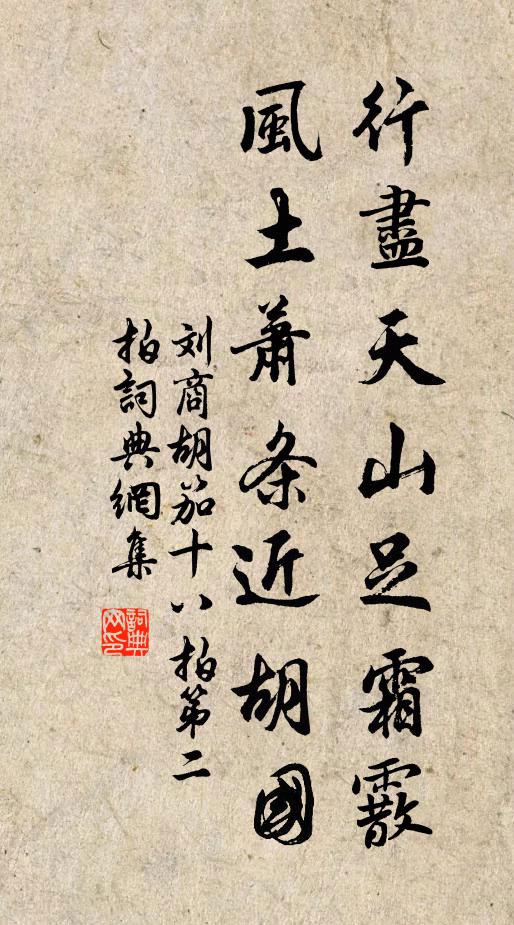 行盡天山足霜霰
風土蕭条近胡國
刘商胡笳十八拍第二
拍詞典網集
詞典网印